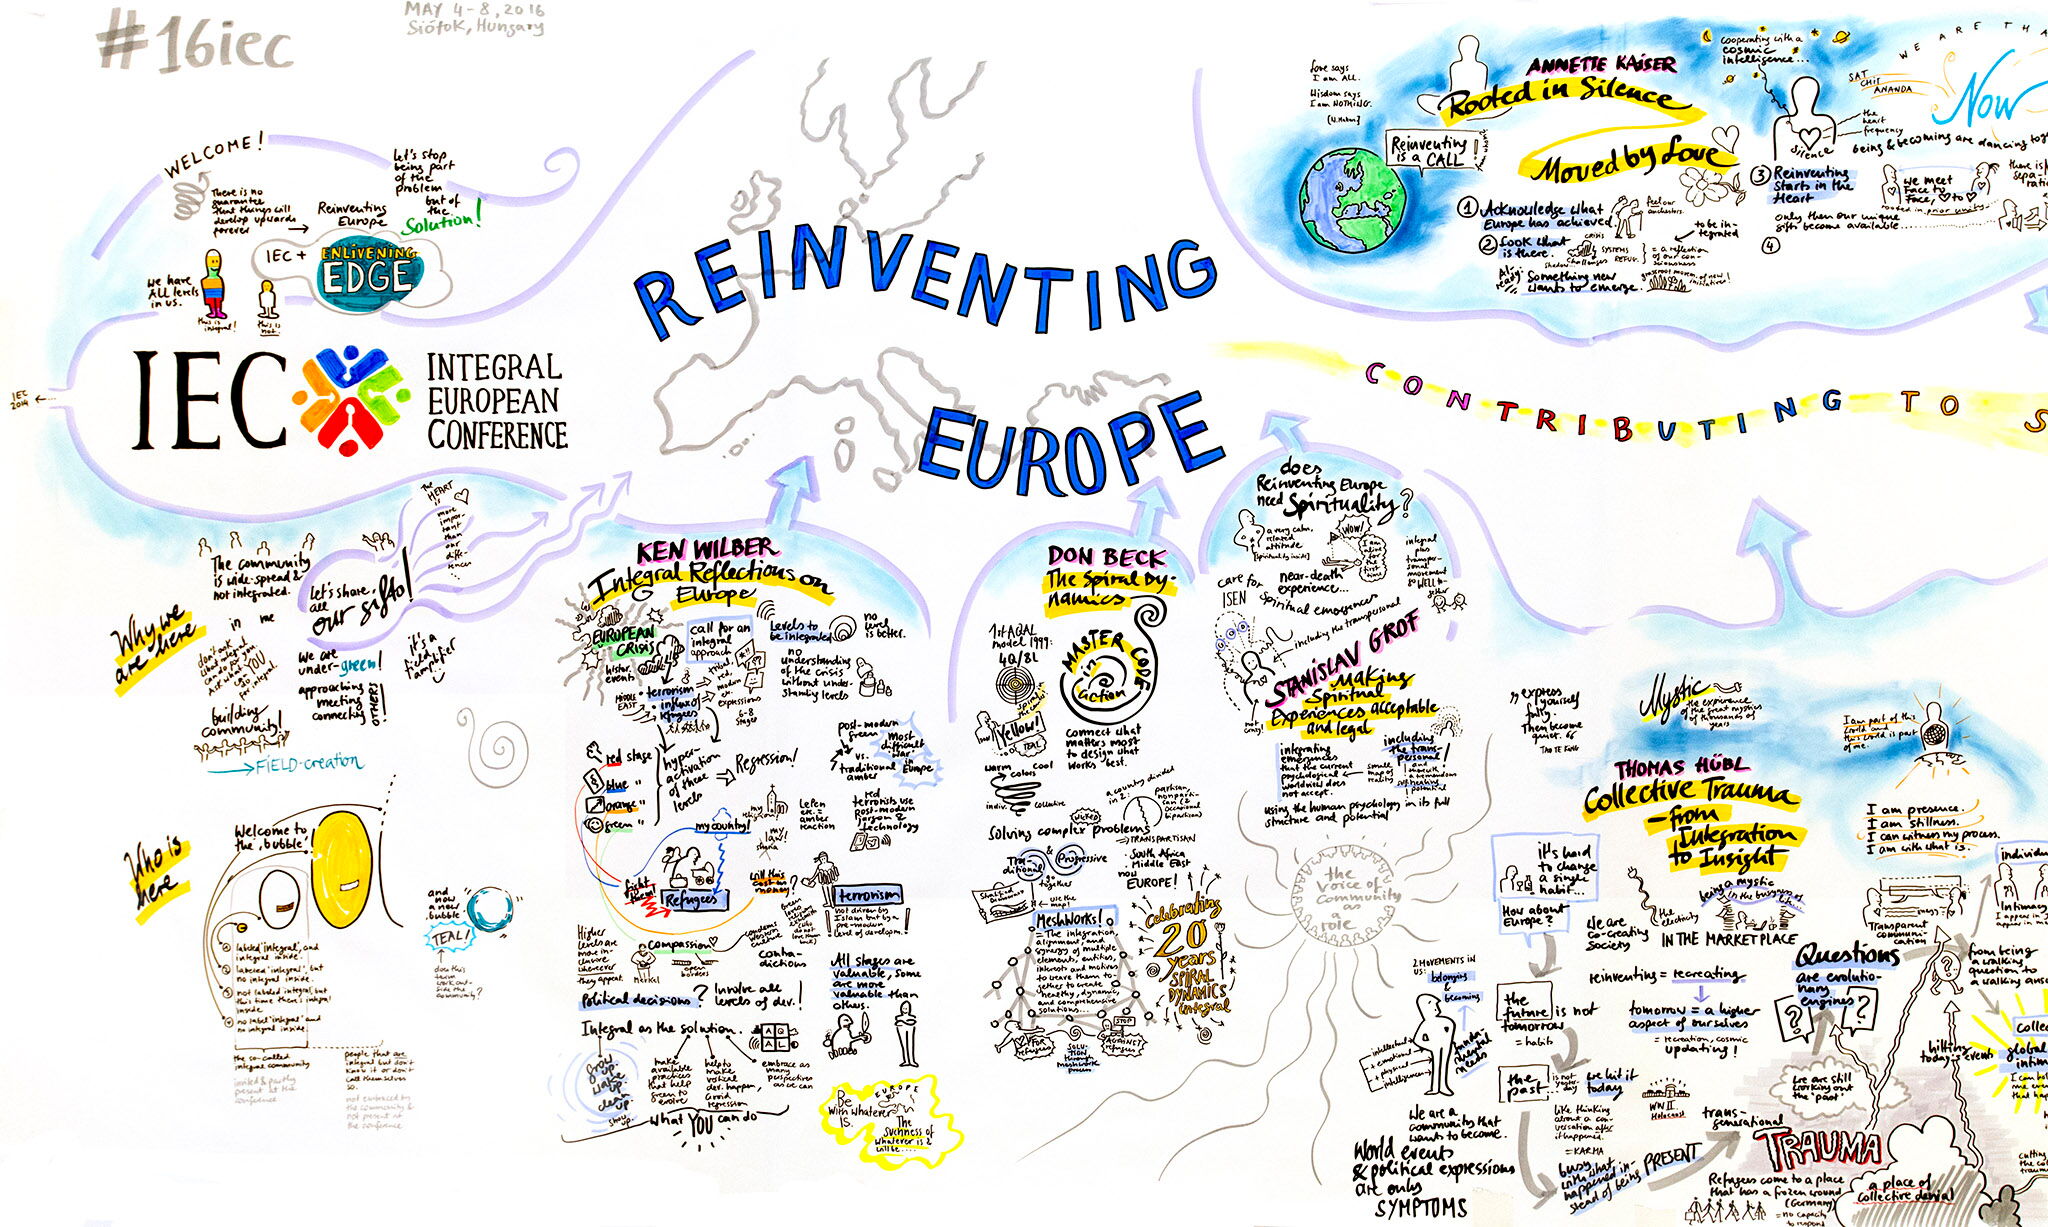 #16iec
MAY 4-8, 2016
Siófok, Hungary
WELCOME!
There is no
guarantee
that things will
develop upwards
forever
Let's stop
being part
of the
problem
but of
the
Solution!
Reinventing
Europe
IEC +
ENLIVENING
EDGE
we have
ALL levels
in us.
this is
integral!
this is
not.
IEC
2014
IEC
INTEGRAL
EUROPEAN
CONFERENCE
REINVENTING
EUROPE
CONTRIBUTING TO S
Why we
are here
The community
is wide-spread &
not integrated.
Let's share
all
our gifts!
the
HEART
is
more
impor-
tant
than
our
diffe-
rences
in me
We are
under-green!
approaching
meeting
connecting
OTHERS!
it's a
field
amplifier
building
community!
FIELD-creation
Who is
here
Welcome to
the 'bubble'!
labeled 'integral', and
integral inside.
labeled 'integral', but
no integral inside
not labeled integral, but
this time there's integral
inside
no label 'integral' and
no integral inside.
the so-called
integral community
invited & partly
present at the
conference
people that are
integral but don't
know it or don't
call themselves
so.
not embraced by
the community &
not present at
the conference
and
now a
new
bubble
TEAL!
does this
term
work out-
side the
community?
KEN WILBER
Integral Reflections on
Europe
EUROPEAN
CRISIS
histor.
events
call for an
integral
approach
Levels to
be integrated
no
level
is better.
no
understanding
of the crisis
without under-
standing levels
MIDDLE
EAST
terrorism
influx of
refugees
6-8
stages
red stage
blue "
orange "
green "
hyper-
activation
of these
levels
Regression!
post-modern
green
vs.
traditional
amber
most
difficult
war
in Europe
my country!
my
religion!
my
land!
sharia
LePen
etc. =
amber
reaction
red
terrorists use
post-modern
person &
technology
fight
them!
Refugees
will this
cost us
money?
terrorism
not driven by
Islam, but by a
pre-modern
level of developm!
Higher
levels are
more in-
clusive
wherever
they appear.
compassion
Merkel
open
borders
contra-
dictions
Political decisions?
Involve all
levels of dev.!
All stages are
valuable, some
are more
valuable than
others.
Integral as the solution.
AQ
AL
grow
up
wake
up
clean
up
show
up.
make
available
practices
that help
green to
evolve
helps
make
vertical
dev. happen,
avoid
regression
embrace as
many
perspectives
as we can
what YOU can do
Be
with whatever
IS.
EUROPE
The
suchness of
whatever is &
will be....
DON BECK
The Spiral Dy-
namics
1st AQAL
model 1999:
4Q/8L
MASTER CODE
in
action
Yellow!
TEAL
connect what
matters most
to design what
works best.
warm cool
colors
indiv. collective
a country divided
in 2:
partisan,
nonparti-
san (2
occasional
bipartisan)
WICKED
Solving complex problems
TRANSPARTISAN
Tra-
ditional
&
Progressive
go
together
South Africa
Middle East
now EUROPE!
use the
map!
MeshWorks!
= The integration,
alignment, and
synergy of multiple
elements, entities,
interests and motives
to weave them to-
gether to create
healthy, dynamic,
and comprehensive
solutions...
FOR
refugees
SOLU-
TION
through
meshwork
process
STOP
AGAINST
refugees
celebrating
20
years
SPIRAL
DYNAMICS
integral
does
Reinventing Europe
need Spirituality?
a very calm,
related
attitude
[spirituality inside]
WOW!
I am
alive for
the
first
time
integral
plus
transper-
sonal
movement
go WELL to-
gether
care for
ISEN
near-death
experience...
Spiritual emergences
including the transpersonal
not
crazy!
STANISLAV GROF
Making
Spiritual
Experiences acceptable
and legal
integrating
emergences
that the current
psychological
worldview does
not accept.
small
map of
reality
including
the trans-
personal!
using the human psychology in its full
structure and potential
the
voice of
community
as a
role
love says
I am ALL.
Wisdom says
I am NOTHING.
ANNETTE KAISER
Rooted in Silence
Moved by Love
Reinventing
is a CALL
cooperating with a
cosmic
intelligence...
silence
the
heart
frequency
SAT
CHIT
ANANDA
WE ARE THA
Now
being & becoming are dancing tog
1 Acknowledge what
Europe has achieved
2 Look what
is there.
CRISIS
SYSTEMS
challenges
REFUG.
= a reflection
of our con-
sciousness
to be in-
tegrated
Al-
ready
Something new
wants to emerge.
3 Reinventing
starts in the
Heart
only then our unique
gifts become available......
4
we meet
Face to
Face, ♡ to ♡
rooted in prior unity
there is
sepa-
ratio
express
yourself
fully.
Then become
quiet.
TAO TE KING
Mystic
the experience
of the great mystics
of thousands of
years
I am part of this
world and
this world is part
of me.
THOMAS HÜBL
Collective Trauma
- from
Integration
to Insight
I am presence.
I am stillness.
I can witness my process.
I am with what is.
it's hard
to change
a single
habit...
How about
Europe?
we are
co-creating
society
the
electricity
being a mystic
in the busyness of
IN THE MARKETPLACE
reinventing = recreating
tomorrow = a higher
aspect of ourselves
= recreation, cosmic
updating!
Transparent
communi-
cation
individua
Intimacy
Questions
are evolutio-
nary
engines
from being
a walking
question to
a walking answ
2 MOVEMENTS IN
US:
belonging
&
becoming
intellectual
+ emotional
+ physical
intelligence
the
future is not
tomorrow
= habits
the
past
is not
yester-
day
we hit it
today
WW II
Holocaust
like thinking
about a con-
versation after
it happened.
= KARMA
busy
with what
happened in-
stead of being
PRESENT
we are a
community that
wants to become.
World events
& political expressions
are only
SYMPTOMS
trans-
generational
TRAUMA
we are still
working out
the 'past'
hitting
today's events
Refugees come to a place
that has a frozen wound
(Germany)
= no capacity
to respond
a place of
collective denial
collec
global
intima